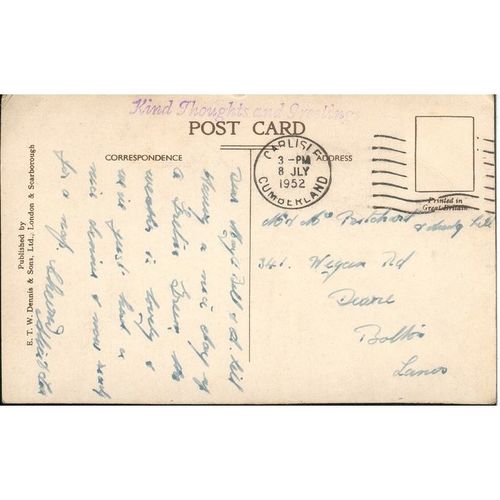 Kind Thoughts and Greetings
POST CARD
CORRESPONDENCE
ADDRESS
CARLISLE
3 - PM
8 JLY
1952
CUMBERLAND
Printed in
Great Britain
Published by
E. T. W. Dennis & Sons, Ltd., London & Scarborough
Dear Bill & Lil
Having a nice day
weather is lovely &
we just had a
nice dinner & now ready
for a
Mr Pritchard
341. Wigan Rd
Deane
Bolton
Lancs